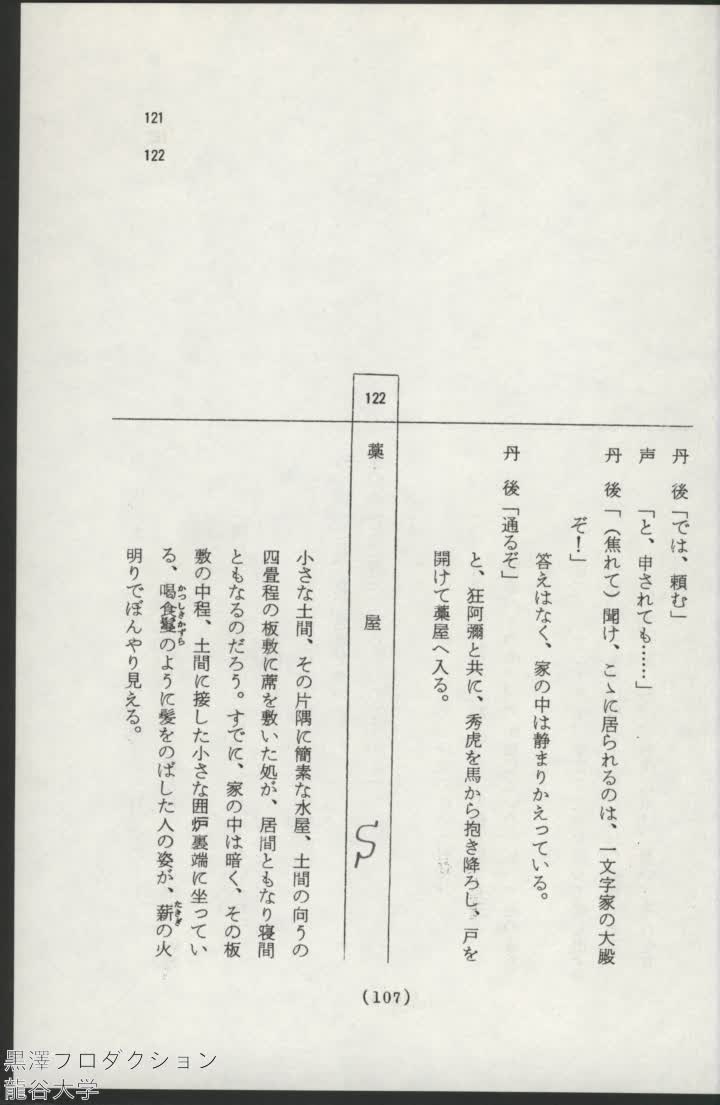 121
122
丹後「では、頼む」
声「と、申されても……」
丹後「(焦れて)聞け、こゝに居られるのは、一文字家の大殿
ぞ！」
答えはなく、家の中は静まりかえっている。
丹後「通るぞ」
と、狂阿彌と共に、秀虎を馬から抱き降ろし、戸を
開けて藁屋へ入る。
122 藁屋
S
小さな土間、その片隅に簡素な水屋、土間の向うの
四畳程の板敷に蓆を敷いた処が、居間ともなり寝間
ともなるのだろう。すでに、家の中は暗く、その板
敷の中程、土間に接した小さな囲炉裏端に坐ってい
る、喝食鬘のように髪をのばした人の姿が、薪の火
かつしきかずら
たきぎ
明りでぼんやり見える。
(107)
黒澤プロダクション
龍谷大学